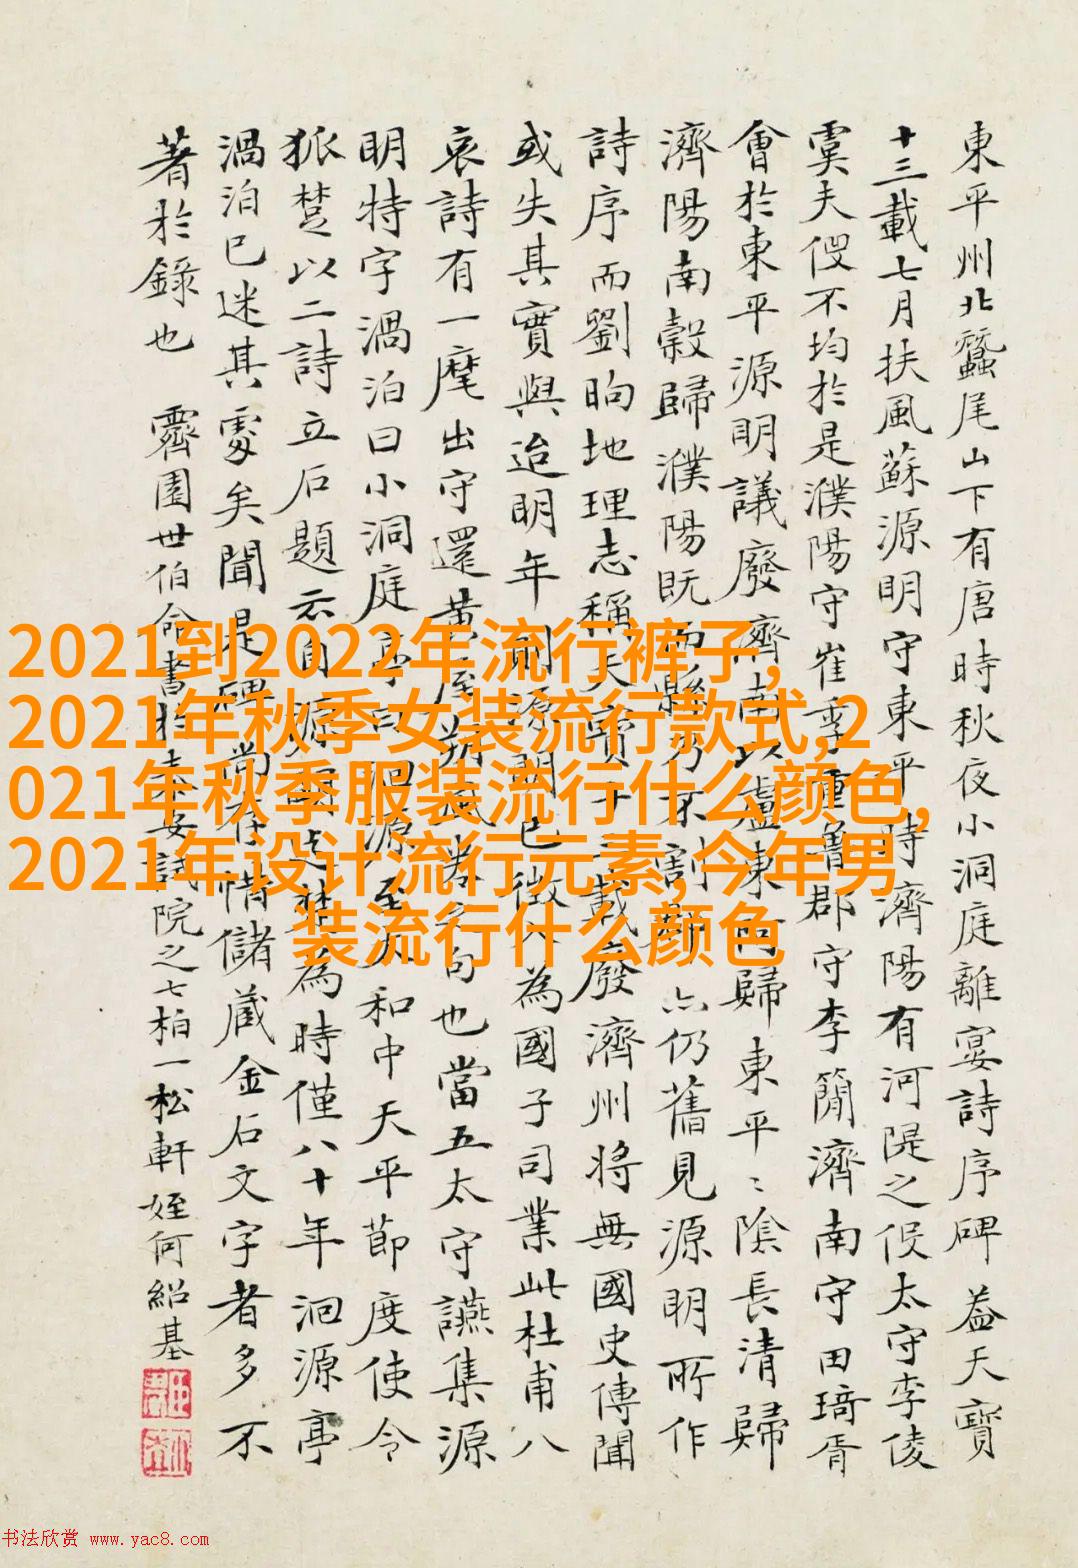 東平州北蠶尾山下有唐時秋夜小洞庭離宴詩序碑 蓋天寶
十三載七月扶風蘇源明守東平時濟陽有河隄之役太守李倰
虞夫役不均於是濮陽守崔季重魯郡守李簡濟南守田琦胥
會於東平源明議廢濟南以盧東阿歸東平〻陰長清歸
濟陽南穀歸濮陽既而縣乃不割郡亦仍舊見源明所作
詩序而劉昫地理志稱天寶十三載廢濟州將無國史傳聞
或失其實與迨明年也徵入為國子司業此杜甫八
哀詩有一麾出守還黃屋朔句也當五太守讌集源
明特字渦泊曰小洞庭亭曰洄源至大和中天平節度使令
狐楚以二詩立石題云自源明迄楚為時僅八十年洄源亭
渦泊已迷其處矣聞是碑尚存惜儲藏金石文字者多不
著於錄也 霽園世伯命書於泰安試院之七柏一松軒 姪何紹基
2021到2022年流行裤子,
2021年秋季女装流行款式,2
021年秋季服装流行什么颜色,
2021年设计流行元素,今年男
装流行什么颜色
书法欣赏 www.yac8.com